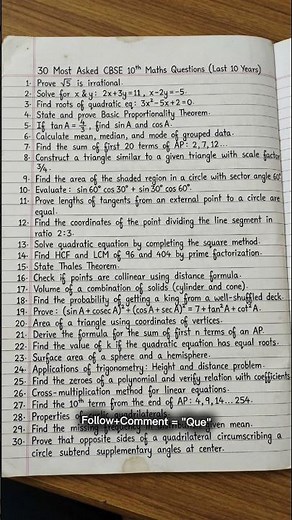 30 Most Asked CBSE 10th Maths Questions (Last 10 Years)
1- Prove √5 is irrational.
2- Solve for x & y: 2x+3y=11, x-2y=-5.
3- Find roots of quadratic eq: 3x²-5x+2=0.
4- State and prove Basic Proportionality Theorem.
5- If tan A = 3/4, find sin A and cos A.
6- Calculate mean, median, and mode of grouped data.
7- Find the sum of first 20 terms of AP: 2, 7, 12...
8- Construct a triangle similar to a given triangle with scale factor
3/4.
9- Find the area of the shaded region in a circle with sector angle 60°
10- Evaluate: sin 60° cos 30° + sin 30° cos 60°.
11- Prove lengths of tangents from an external point to a circle are
equal.
12- Find the coordinates of the point dividing the line segment in
ratio 2:3.
13- Solve quadratic equation by completing the square method.
14- Find HCF and LCM of 96 and 404 by prime factorization.
15- State Thales Theorem.
16- Check if points are collinear using distance formula.
17- Volume of a combination of solids (cylinder and cone).
18- Find the probability of getting a king from a well-shuffled deck.
19- Prove: (sin A + cosec A)² + (cos A + sec A)² = 7 + tan² A + cot² A.
20- Area of a triangle using coordinates of vertices.
21- Derive the formula for the sum of first n terms of an AP.
22- Find the value of k if the quadratic equation has equal roots.
23- Surface area of a sphere and a hemisphere.
24- Applications of trigonometry: Height and distance problem.
25- Find the zeroes of a polynomial and verify relation with coefficients
26- Cross-multiplication method for linear equations.
27- Find the 10th term from the end of AP: 4, 9, 14... 254.
28- Properties of quadrilaterals.
Follow+Comment = "Que"
29- Find the missing frequency given mean.
30- Prove that opposite sides of a quadrilateral circumscribing a
circle subtend supplementary angles at center.